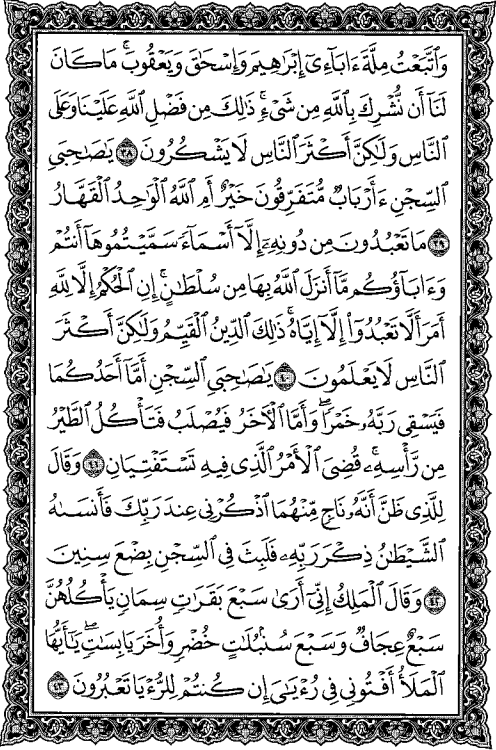 وَٱتَّبَعْتُ مِلَّةَ ءَابَآءِىٓ إِبْرَٰهِيمَ وَإِسْحَٰقَ وَيَعْقُوبَ ۚ مَا كَانَ
لَنَآ أَن نُّشْرِكَ بِٱللَّهِ مِن شَىْءٍ ۚ ذَٰلِكَ مِن فَضْلِ ٱللَّهِ عَلَيْنَا وَعَلَى
ٱلنَّاسِ وَلَٰكِنَّ أَكْثَرَ ٱلنَّاسِ لَا يَشْكُرُونَ ٣٨ يَٰصَىٰحِبَىِ
ٱلسِّجْنِ ءَأَرْبَابٌ مُّتَفَرِّقُونَ خَيْرٌ أَمِ ٱللَّهُ ٱلْوَٰحِدُ ٱلْقَهَّارُ
٣٩ مَا تَعْبُدُونَ مِن دُونِهِۦٓ إِلَّآ أَسْمَآءً سَمَّيْتُمُوهَآ أَنتُمْ
وَءَابَآؤُكُم مَّآ أَنزَلَ ٱللَّهُ بِهَا مِن سُلْطَٰنٍ ۚ إِنِ ٱلْحُكْمُ إِلَّا لِلَّهِ
أَمَرَ أَلَّا تَعْبُدُوٓا۟ إِلَّآ إِيَّاهُ ۚ ذَٰلِكَ ٱلدِّينُ ٱلْقَيِّمُ وَلَٰكِنَّ أَكْثَرَ
ٱلنَّاسِ لَا يَعْلَمُونَ ٤٠ يَٰصَىٰحِبَىِ ٱلسِّجْنِ أَمَّآ أَحَدُكُمَا
فَيَسْقِى رَبَّهُۥ خَمْرًا ۖ وَأَمَّا ٱلْءَاخَرُ فَيُصْلَبُ فَتَأْكُلُ ٱلطَّيْرُ
مِن رَّأْسِهِۦ ۚ قُضِىَ ٱلْأَمْرُ ٱلَّذِى فِيهِ تَسْتَفْتِيَانِ ٤١ وَقَالَ
لِلَّذِى ظَنَّ أَنَّهُۥ نَاجٍ مِّنْهُمَا ٱذْكُرْنِى عِندَ رَبِّكَ فَأَنسَىٰهُ
ٱلشَّيْطَٰنُ ذِكْرَ رَبِّهِۦ فَلَبِثَ فِى ٱلسِّجْنِ بِضْعَ سِنِينَ
٤٢ وَقَالَ ٱلْمَلِكُ إِنِّىٓ أَرَىٰ سَبْعَ بَقَرَٰتٍ سِمَانٍ يَأْكُلُهُنَّ
سَبْعٌ عِجَافٌ وَسَبْعَ سُنۢبُلَٰتٍ خُضْرٍ وَأُخَرَ يَابِسَٰتٍ ۖ يَٰٓأَيُّهَا
ٱلْمَلَأُ أَفْتُونِى فِى رُءْيَٰىَ إِن كُنتُمْ لِلرُّءْيَا تَعْبُرُونَ ٤٣